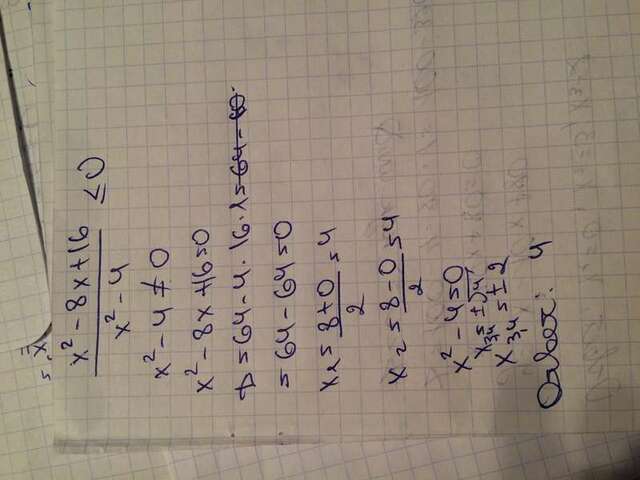 x² - 8x + 16
―――――― ≤ 0
x² - 4
x² - 4 ≠ 0
x² - 8x + 16 = 0
D = 64 - 4 · 16 · 1 = 64 - 60
= 64 - 64 = 0
x₁ = (8 + 0)/2 = 4
x₂ = (8 - 0)/2 = 4
x² - 4 = 0
x₃,₄ = ±√4
x₃,₄ = ±2
Ответ: 4